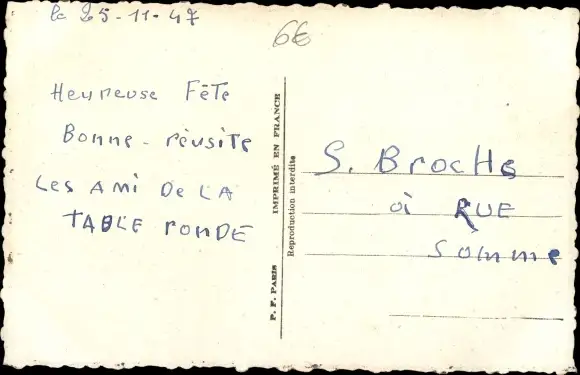 le 25-11-47
6€
Heureuse Fête
Bonne - réusite
Les AMi De LA
TABLE ronDE
P. F. PARIS
IMPRIMÉ EN FRANCE
Reproduction interdite
S. BrocHe
à RUE
Somme